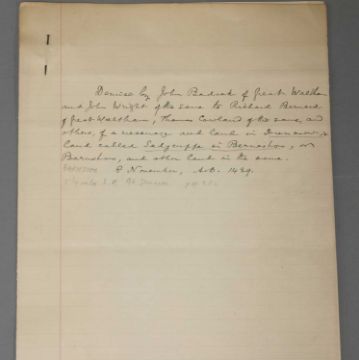 Demise by John Badcok of Great Waltham
and John Wright of the same to Richard Bernard
of Great Waltham, Thomas Cowland of the same, and
others, of a messuage and land in Dunmow, &
land called Salgripps in Bernshoo, or
Bearnshoo, and other land in the same.
8 November, A.D. 1429.